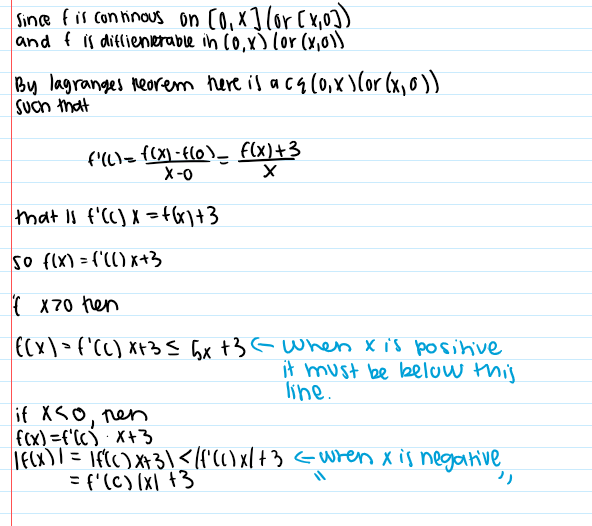 since f is continous on [0,x] (or [x,0])
and f is diffienterable in (0,x) (or (x,0))
By lagranges teorem there is a c ε (0,x) (or (x,0))
such that
f'(c) = f(x)-f(0)/x-0 = f(x)+3/x
that is f'(c) x = f(x)+3
so f(x) = f'(c) x+3
if x>0 then
f(x) = f'(c) x+3 ≤ 5x +3 ← when x is positive
it must be below this
line.
if x<0, then
f(x) = f'(c) · x+3
|f(x)| = |f'(c) x+3| < |f'(c) x| +3 ← when x is negative
= f'(c) |x| +3 " "